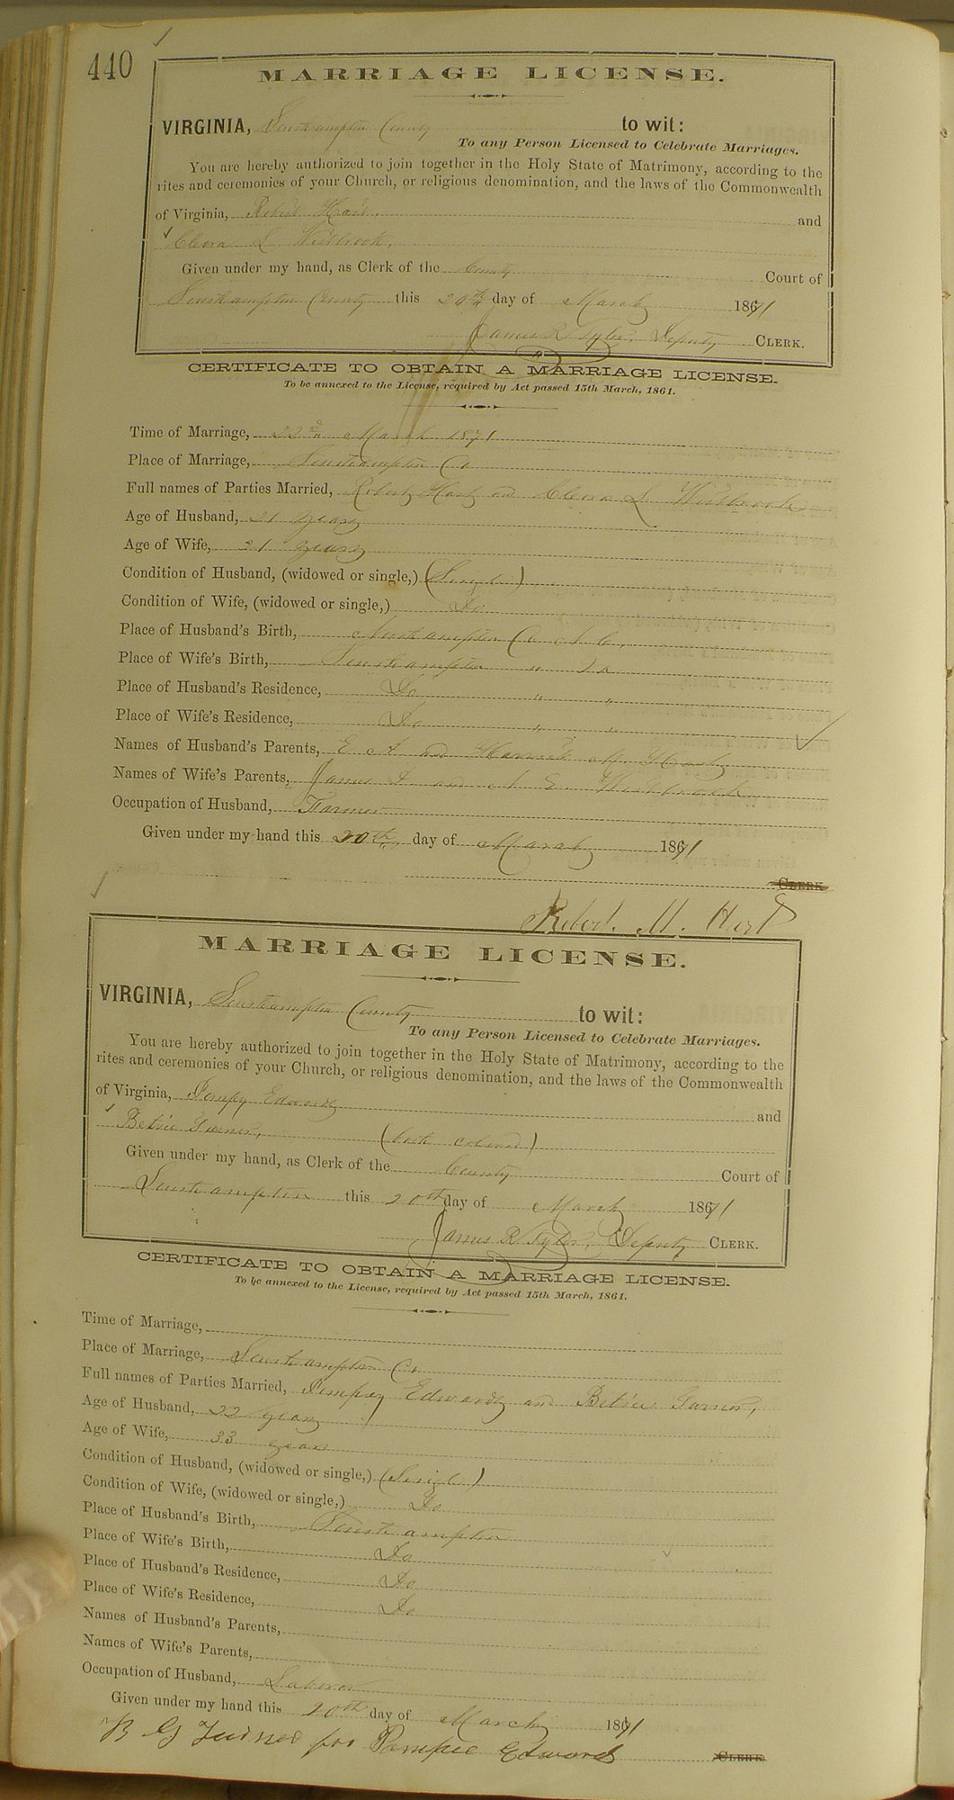 440
MARRIAGE LICENSE.
VIRGINIA, Southampton County to wit:
To any Person Licensed to Celebrate Marriages.
You are hereby authorized to join together in the Holy State of Matrimony, according to the
rites and ceremonies of your Church, or religious denomination, and the laws of the Commonwealth
of Virginia, Robert Hart, and
L Westbrook,
Given under my hand, as Clerk of the County Court of
Southampton County this 20th day of March 1871
James R Tyler, Deputy CLERK.
CERTIFICATE TO OBTAIN A MARRIAGE LICENSE.
To be annexed to the License, required by Act passed 15th March, 1861.
Time of Marriage, 22nd March 1871
Place of Marriage, Southampton Co
Full names of Parties Married, Robert Hart and L Westbrook
Age of Husband, 21 years
Age of Wife, 21 years
Condition of Husband, (widowed or single,) (Single)
Condition of Wife, (widowed or single,) Do
Place of Husband's Birth, Northampton Co N. C.
Place of Wife's Birth, Southampton " Va
Place of Husband's Residence, Do " "
Place of Wife's Residence, Do " "
Names of Husband's Parents, E A and M. Hart
Names of Wife's Parents, James and E. Westbrook
Occupation of Husband, Farmer
Given under my hand this 20th day of March 1871
CLERK
Robert. M. Hart
MARRIAGE LICENSE.
VIRGINIA, Southampton County to wit:
To any Person Licensed to Celebrate Marriages.
You are hereby authorized to join together in the Holy State of Matrimony, according to the
rites and ceremonies of your Church, or religious denomination, and the laws of the Commonwealth
of Virginia, Edwards and
Betsie Turner, (both colored)
Given under my hand, as Clerk of the County Court of
Southampton this 20th day of March 1871
James R Tyler, Deputy CLERK.
CERTIFICATE TO OBTAIN A MARRIAGE LICENSE.
To be annexed to the License, required by Act passed 15th March, 1861.
Time of Marriage,
Place of Marriage, Southampton Co
Full names of Parties Married, Edwards and Betsie Turner,
Age of Husband, 22 years
Age of Wife, 33 years
Condition of Husband, (widowed or single,) (Single)
Condition of Wife, (widowed or single,) Do
Place of Husband's Birth, Southampton
Place of Wife's Birth, Do
Place of Husband's Residence, Do
Place of Wife's Residence, Do
Names of Husband's Parents,
Names of Wife's Parents,
Occupation of Husband, Laborer
Given under my hand this 20th day of March 1871
for Edwards CLERK